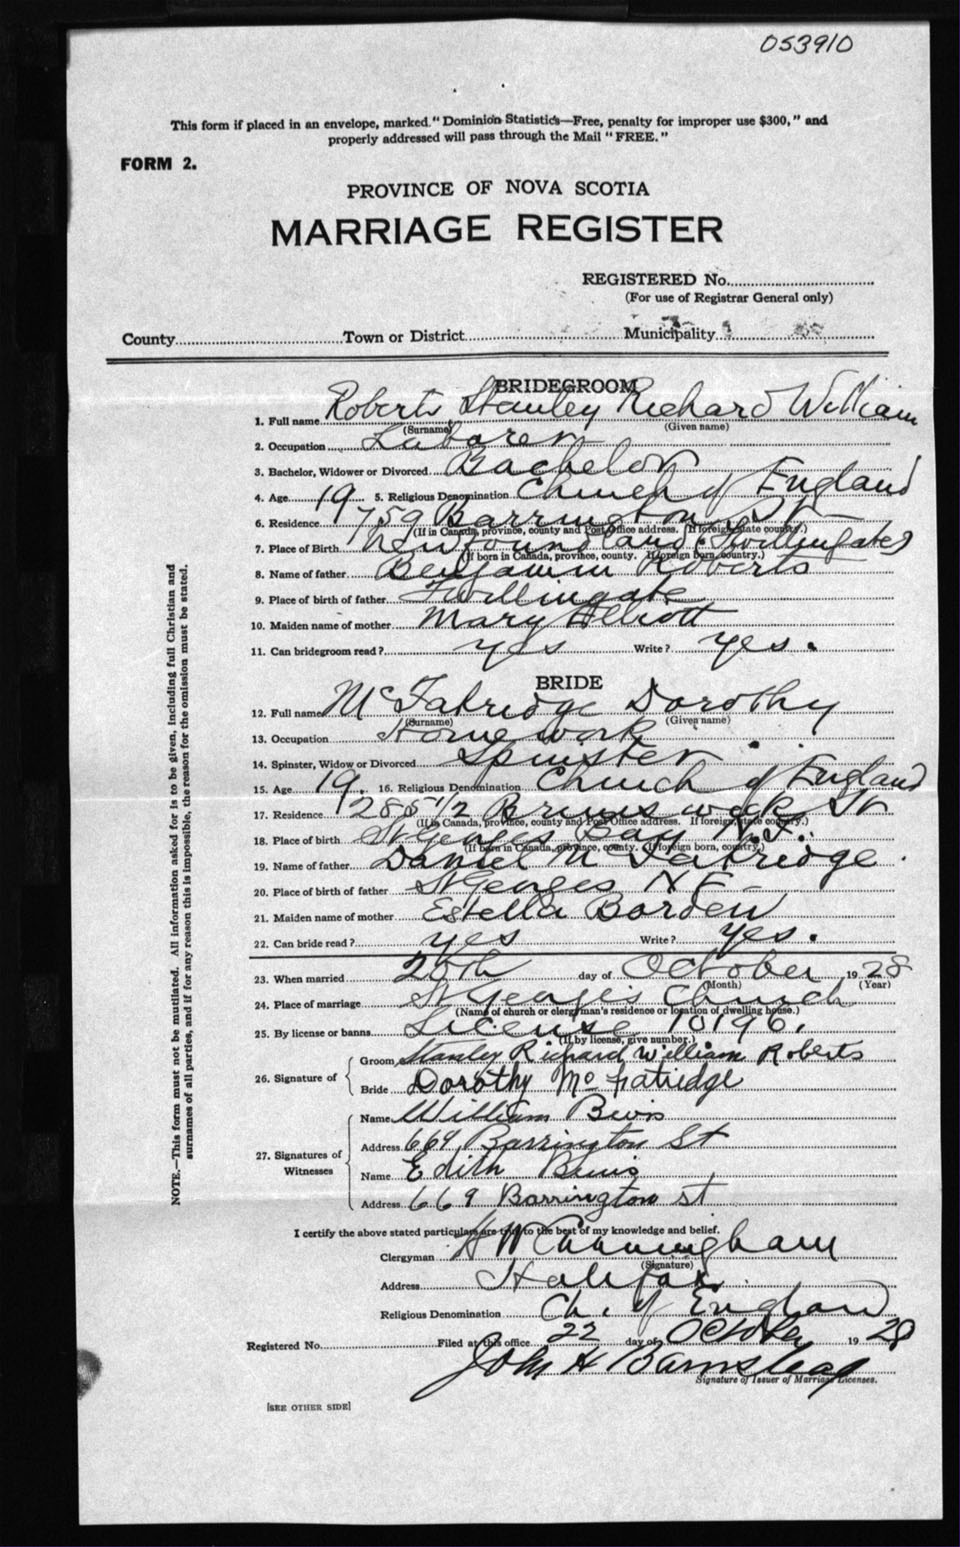 053910
This form if placed in an envelope, marked "Dominion Statistics—Free, penalty for improper use $300," and
properly addressed will pass through the Mail "FREE."
FORM 2.
PROVINCE OF NOVA SCOTIA
MARRIAGE REGISTER
REGISTERED No.
(For use of Registrar General only)
County Town or District Municipality
BRIDEGROOM
1. Full name Roberts Stanley Richard William
(Surname) (Given name)
2. Occupation Laborer
3. Bachelor, Widower or Divorced Bachelor
4. Age 19 5. Religious Denomination Church of England
6. Residence 1759 Barrington St
(If in Canada, province, county and Post Office address. If foreign state country.)
7. Place of Birth Newfoundland (Twillingate)
(If born in Canada, province, county. If foreign born, country.)
8. Name of father Benjamin Roberts
9. Place of birth of father Twillingate
10. Maiden name of mother Mary Elliott
11. Can bridegroom read? yes Write? yes.
BRIDE
12. Full name McFatridge Dorothy
(Surname) (Given name)
13. Occupation Home work
14. Spinster, Widow or Divorced Spinster
15. Age 19. 16. Religious Denomination Church of England
17. Residence 285 1/2 Brunswick St
(If in Canada, province, county and Post Office address. If foreign state country.)
18. Place of birth St Georges Bay N.F.
(If born in Canada, province, county. If foreign born, country.)
19. Name of father Daniel McFatridge
20. Place of birth of father St Georges N F
21. Maiden name of mother Estella Borden
22. Can bride read? yes Write? yes.
23. When married day of October 1928
(Month) (Year)
24. Place of marriage St George's Church
(Name of church or clergyman's residence or location of dwelling house.)
25. By license or banns License 10196.
(If by license, give number.)
26. Signature of
Groom Stanley Richard William Roberts
Bride Dorothy McFatridge
27. Signatures of Witnesses
Name William
Address 669 Barrington St
Name Edith
Address 669 Barrington st
I certify the above stated particulars are true to the best of my knowledge and belief.
Clergyman H W Cunningham
(Signature)
Address Halifax
Religious Denomination Ch. of England
Registered No. Filed at this office 22 day of October 1928
John H Barnstead
Signature of Issuer of Marriage Licenses.
[SEE OTHER SIDE]
NOTE.—This form must not be mutilated. All information asked for is to be given, including full Christian and
surnames of all parties, and if for any reason this is impossible, the reason for the omission must be stated.